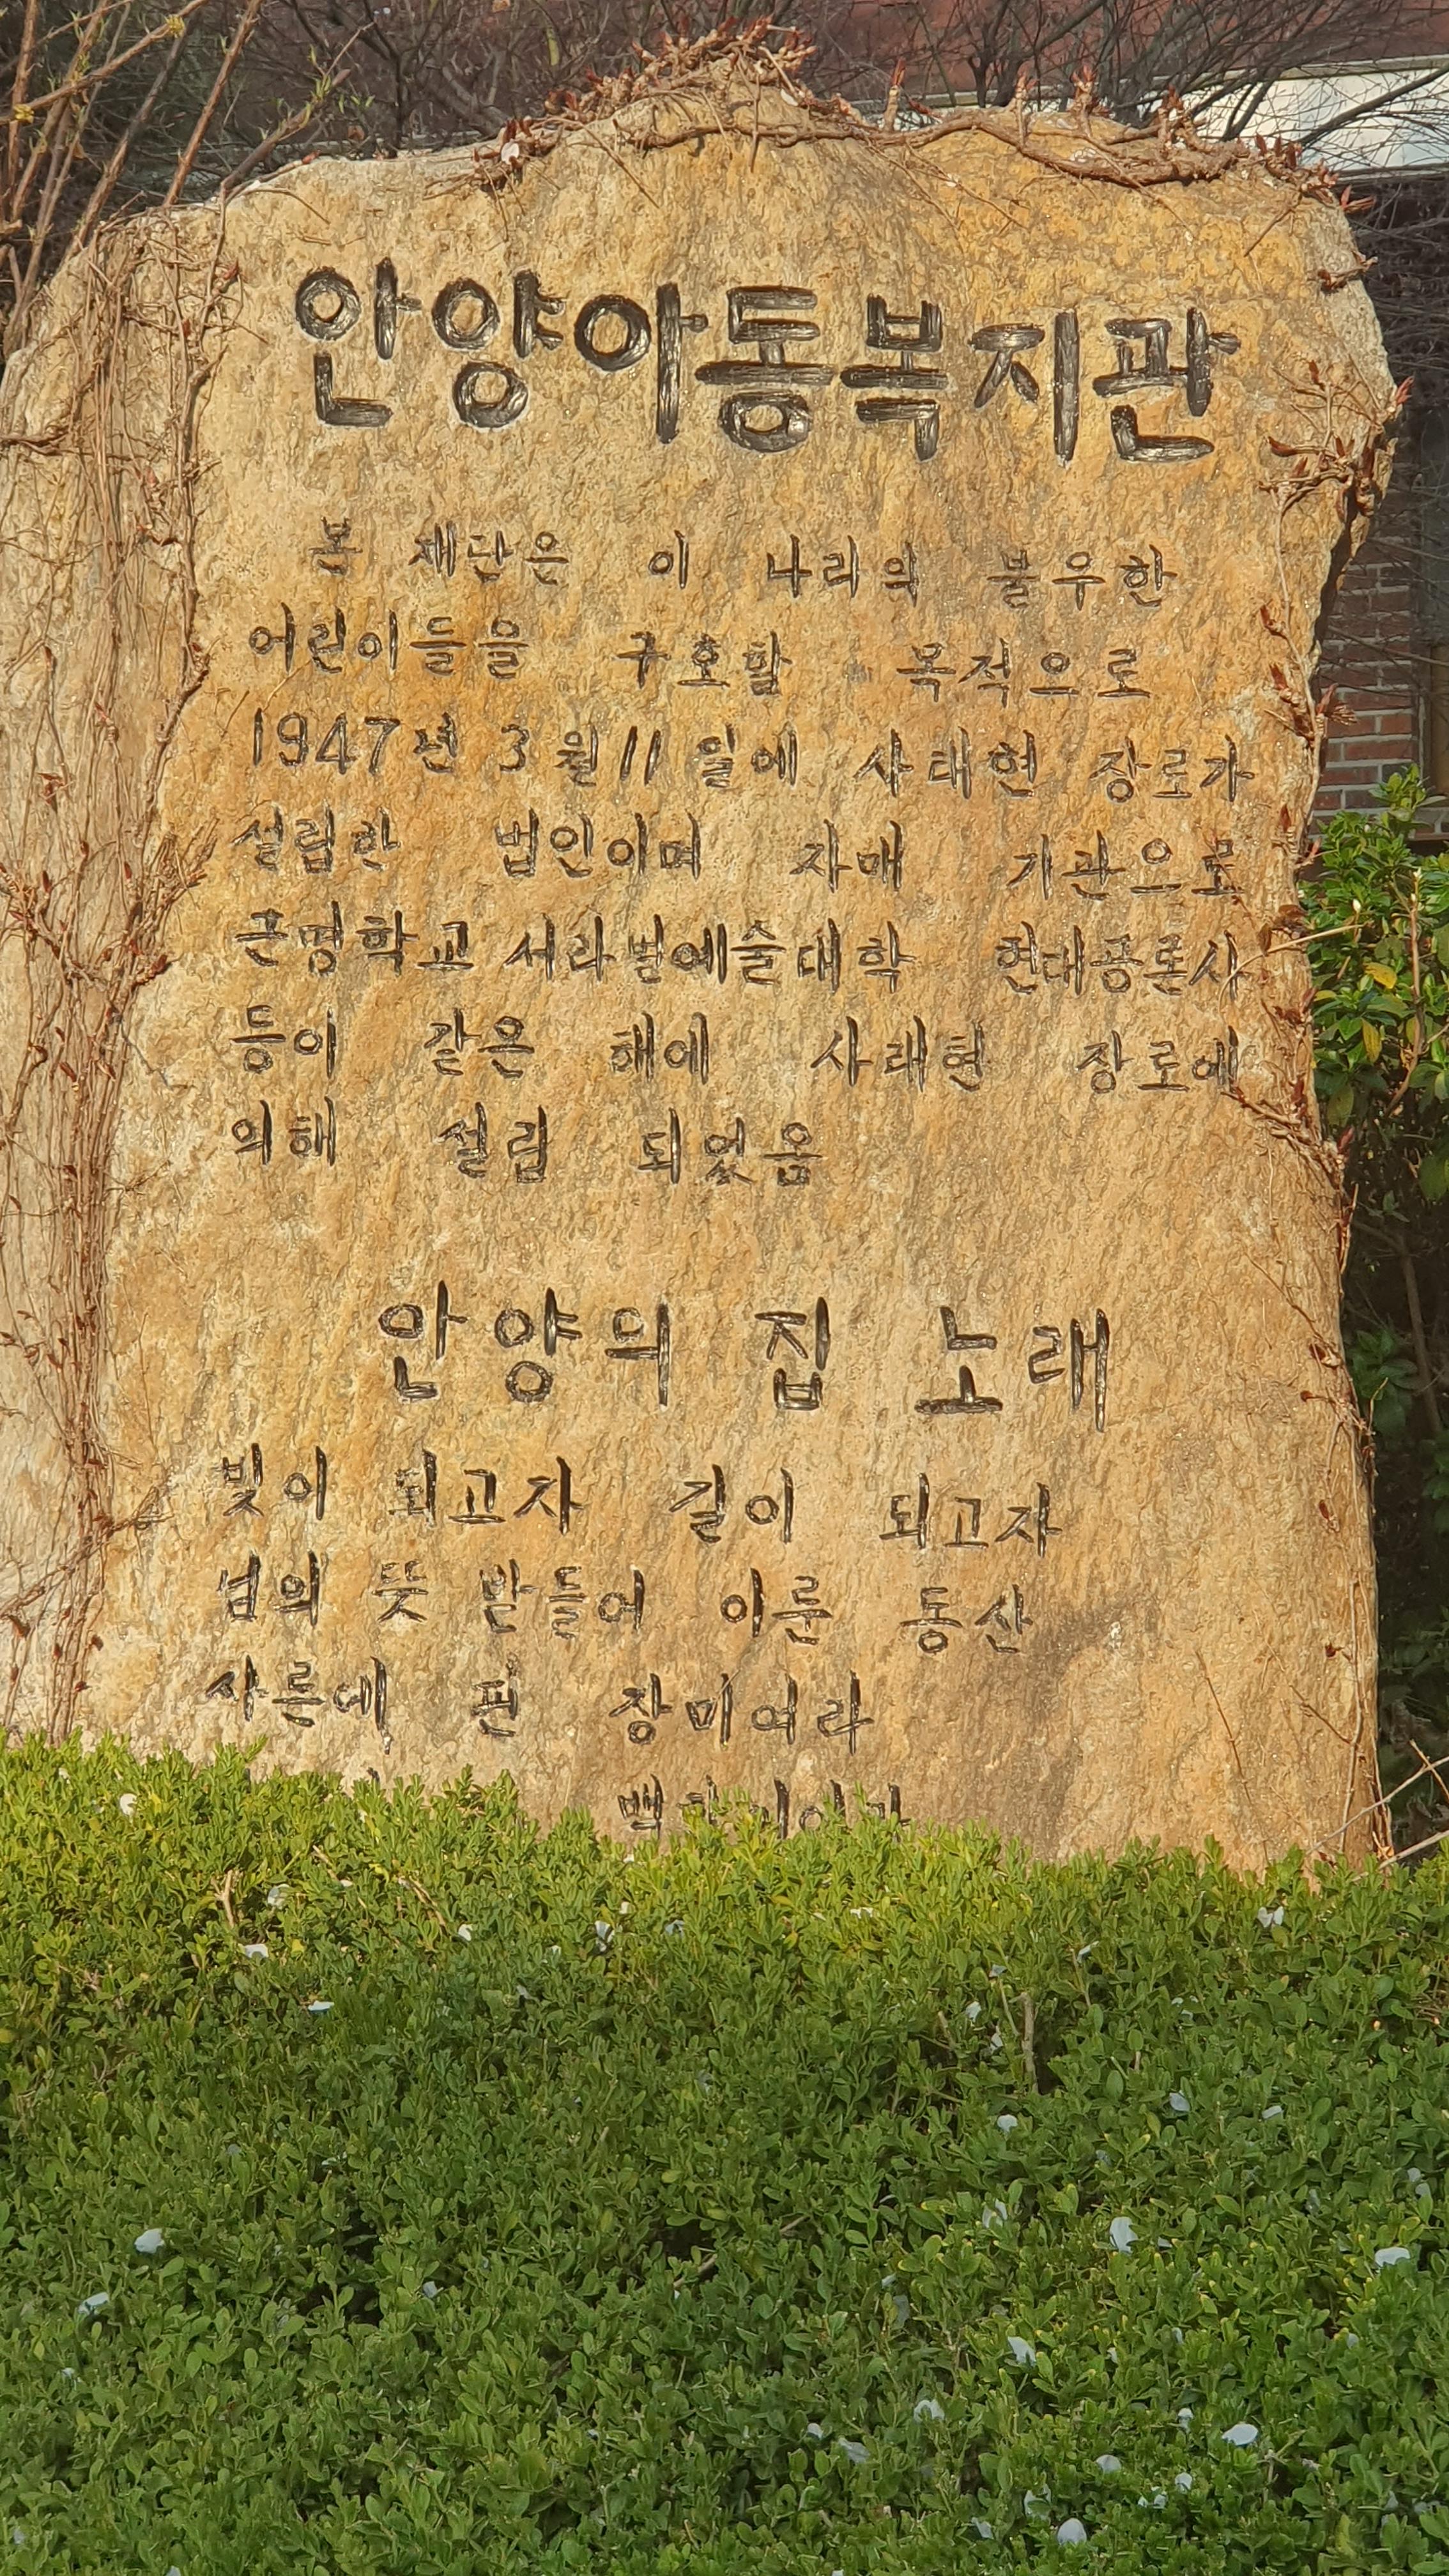 안양아동복지관
본 재단은 이 나라의 불우한
어린이들을 구호할 목적으로
1947년 3월 11일에 사태현 장로가
설립한 법인이며 자매 기관으로
근명학교 서라벌예술대학 현대공론사
등이 같은 해에 사태현 장로에
의해 설립 되었음
안양의 집 노래
빛이 되고자 길이 되고자
님의 뜻 받들어 이룬 동산
사론에 핀 장미여라